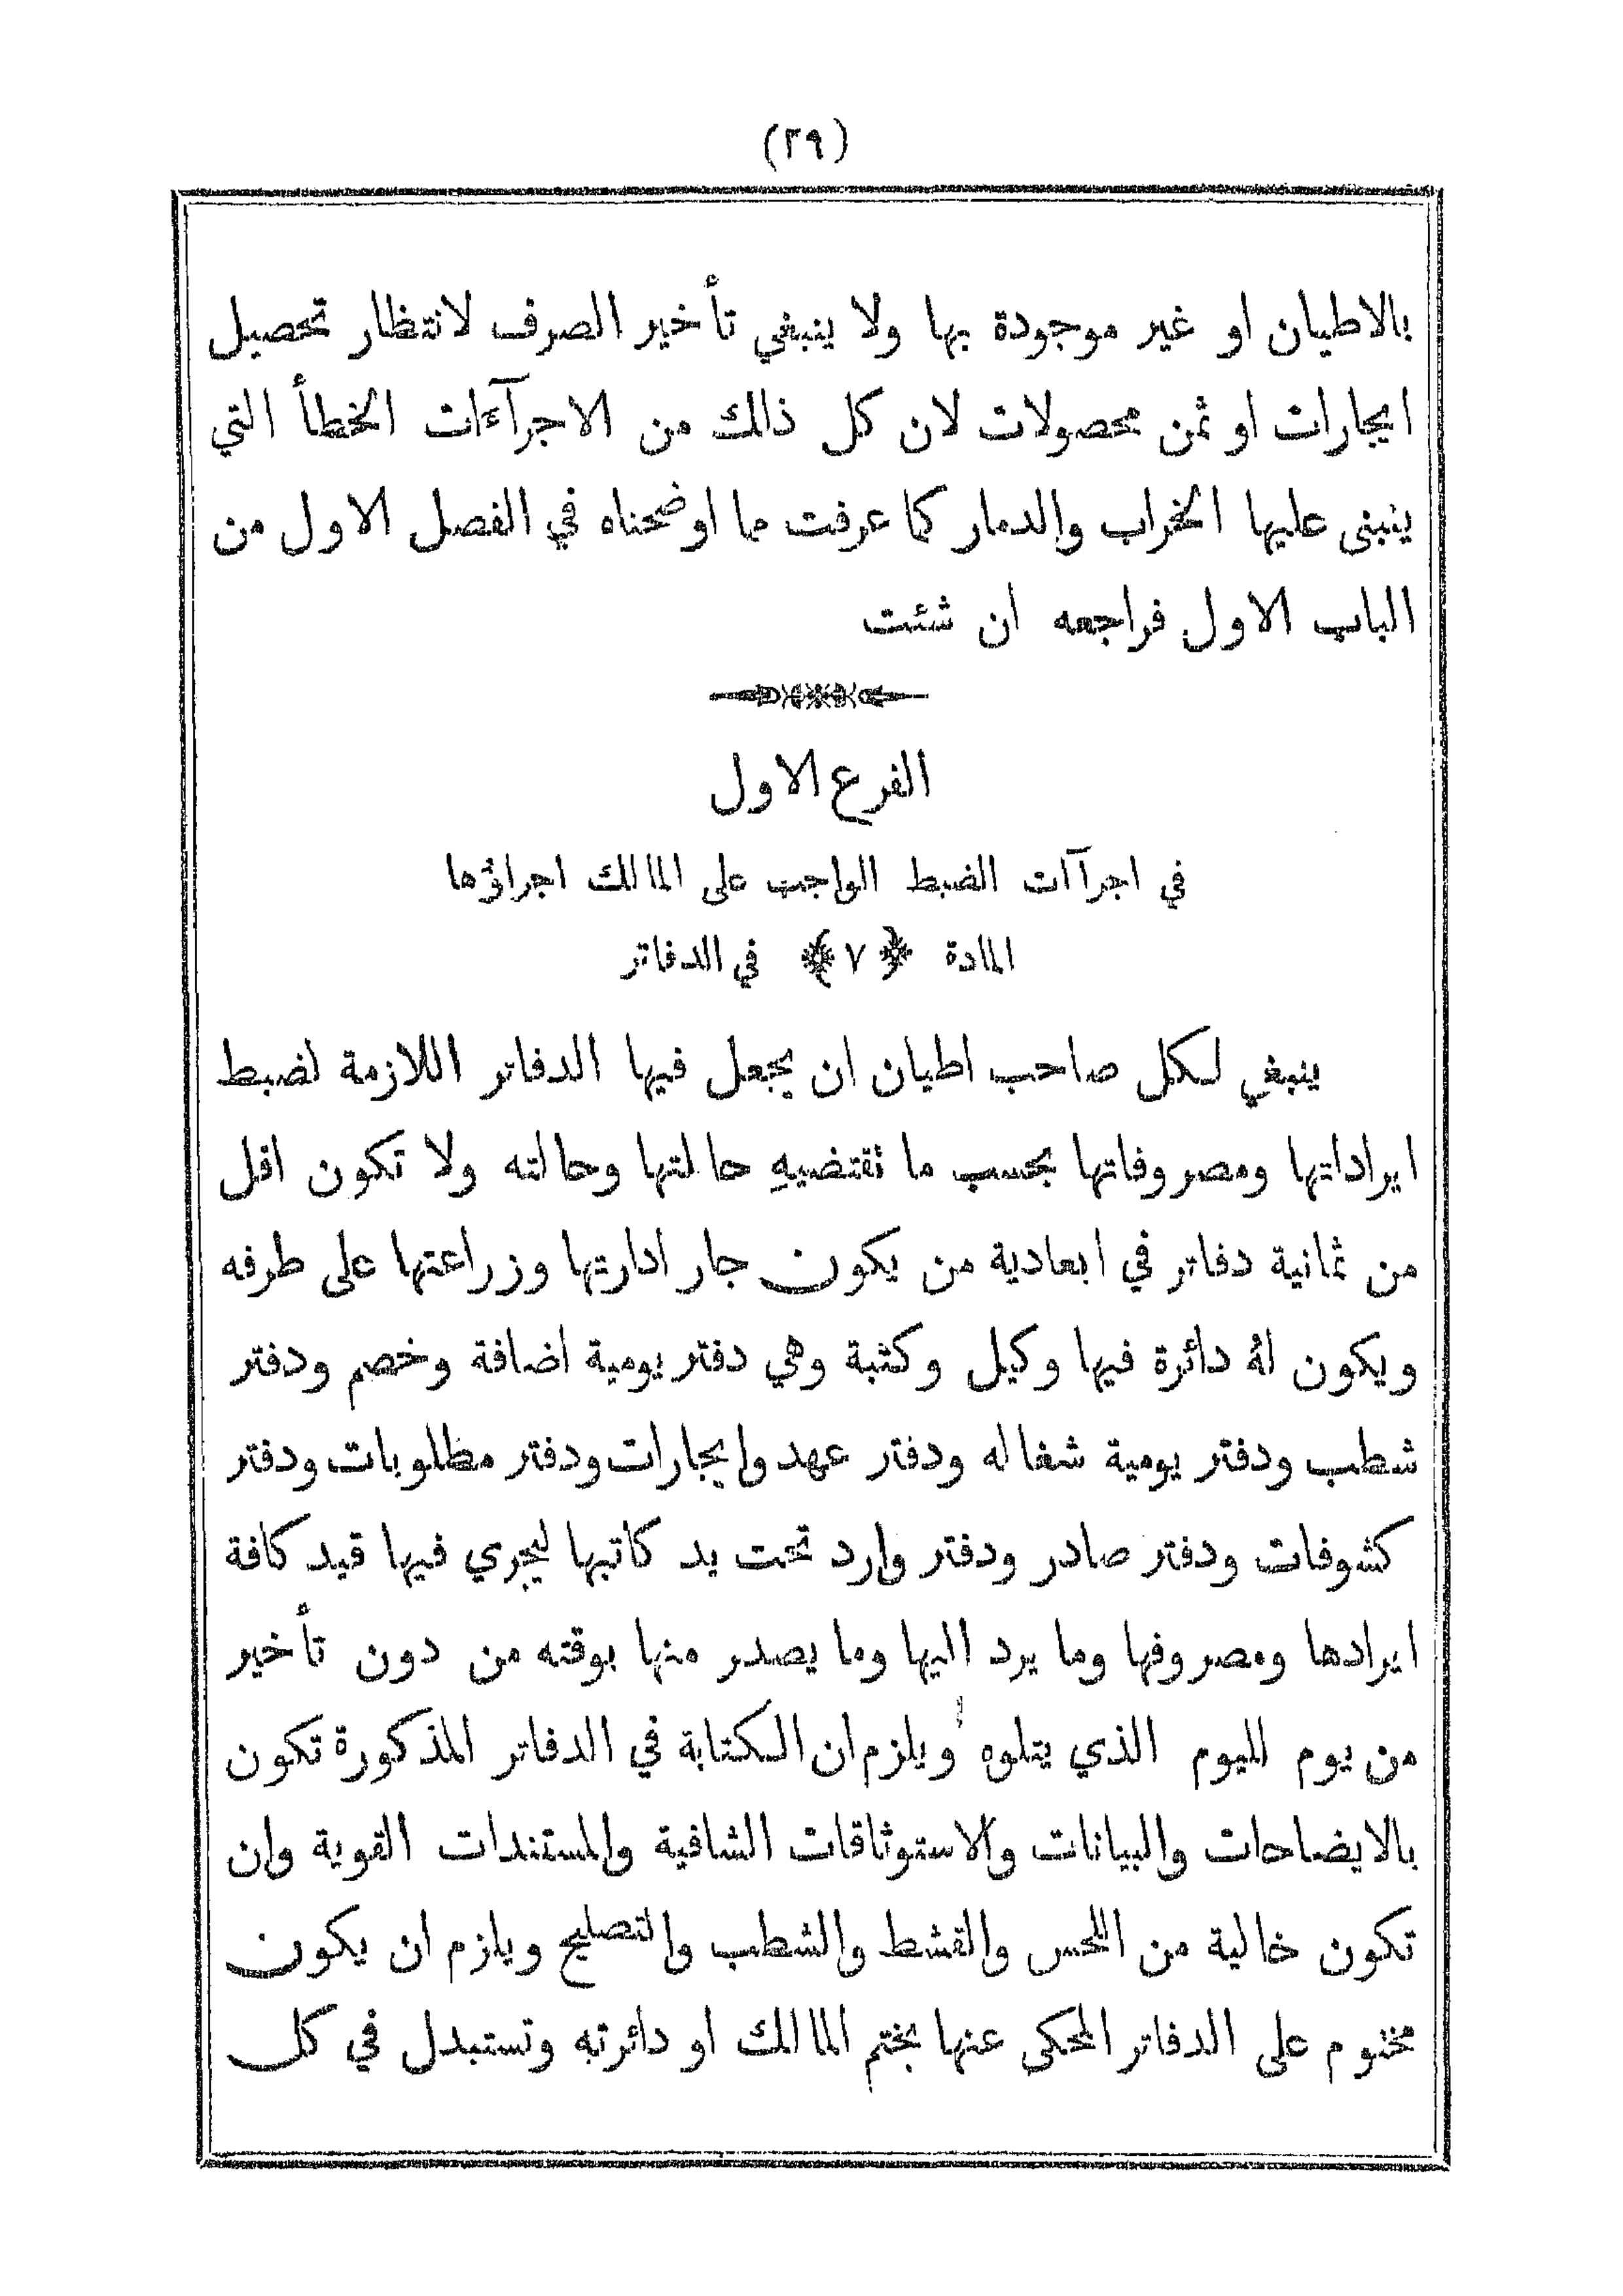 (٢٩)
بالاطيان او غير موجودة بها ولا ينبغي تأخير الصرف لانتظار تحصيل
ايجارات او ثمن محصولات لان كل ذلك من الاجرآءات الخطأ التي
ينبنى عليها الخراب والدمار كما عرفت مما اوضحناه في الفصل الاول من
الباب الاول فراجعه ان شئت
الفرع الاول
في اجراآت الضبط الواجب على المالك اجراؤها
المادة ﴿٧﴾ في الدفاتر
ينبغي لكل صاحب اطيان ان يجعل فيها الدفاتر اللازمة لضبط
ايراداتها ومصروفاتها بحسب ما تقتضيهِ حالتها وحالته ولا تكون اقل
من ثمانية دفاتر في ابعادية من يكون جار ادارتها وزراعتها على طرفه
ويكون لهُ دائرة فيها وكيل وكتبة وهي دفتر يومية اضافة وخصم ودفتر
شطب ودفتر يومية شغاله ودفتر عهد وايجارات ودفتر مطلوبات ودفتر
كشوفات ودفتر صادر ودفتر وارد تحت يد كاتبها ليجري فيها قيد كافة
ايرادها ومصروفها وما يرد اليها وما يصدر منها بوقته من دون تأخير
من يوم لليوم الذي يتلوه ويلزم ان الكتابة في الدفاتر المذكورة تكون
بالايضاحات والبيانات والاستوثاقات الشافية والمستندات القوية وان
تكون خالية من اللحس والقشط والشطب والتصليح ويلزم ان يكون
مختوم على الدفاتر المحكى عنها بختم المالك او دائرته وتستبدل في كل